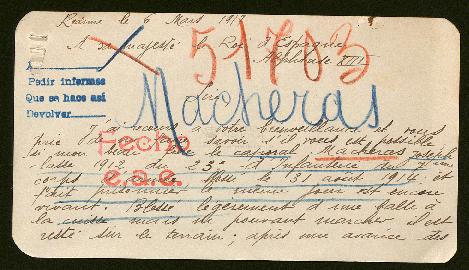 Léorme le 6 Mars 1917
51703
A sa majesté Roi d'Espagne
Alphonse XIII
Pedir informes
Que se hace así
Devolver
Sire
Macheras
J'ai recours à votre bienveillance et vous
prie de savoir s'il vous est possible
si mon le caporal Macheras Joseph
Fecho
classe 1912 du 23e d'Infanterie du 7 ème
corps le 31 août 1914 et
e.a.e.
fait prisonnier le même jour est encore
vivant. Blessé légèrement d'une balle à
la cuisse mais ne pouvant marcher il est
resté sur le terrain; après une avance des